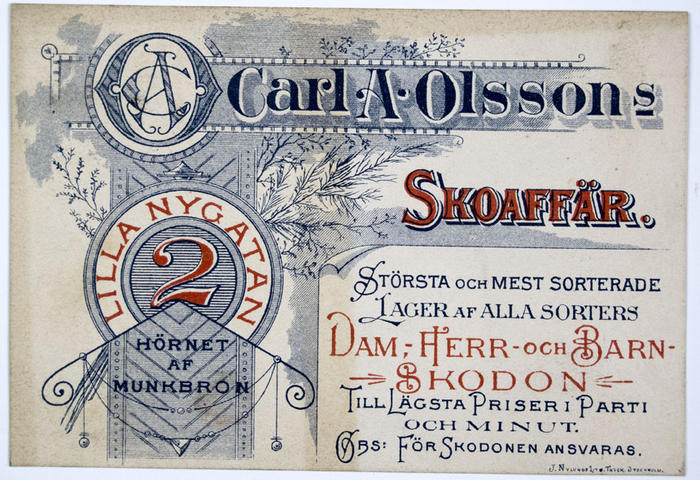 Carl A. Olssons
SKOAFFÄR.
LILLA NYGATAN
2
HÖRNET
AF
MUNKBRON
STÖRSTA OCH MEST SORTERADE
LAGER AF ALLA SORTERS
DAM,- HERR- OCH BARN-
SKODON
TILL LÄGSTA PRISER I PARTI
OCH MINUT.
OBS: FÖR SKODONEN ANSVARAS.
J. NYLUNDS LITO. TRYCK. STOCKHOLM.